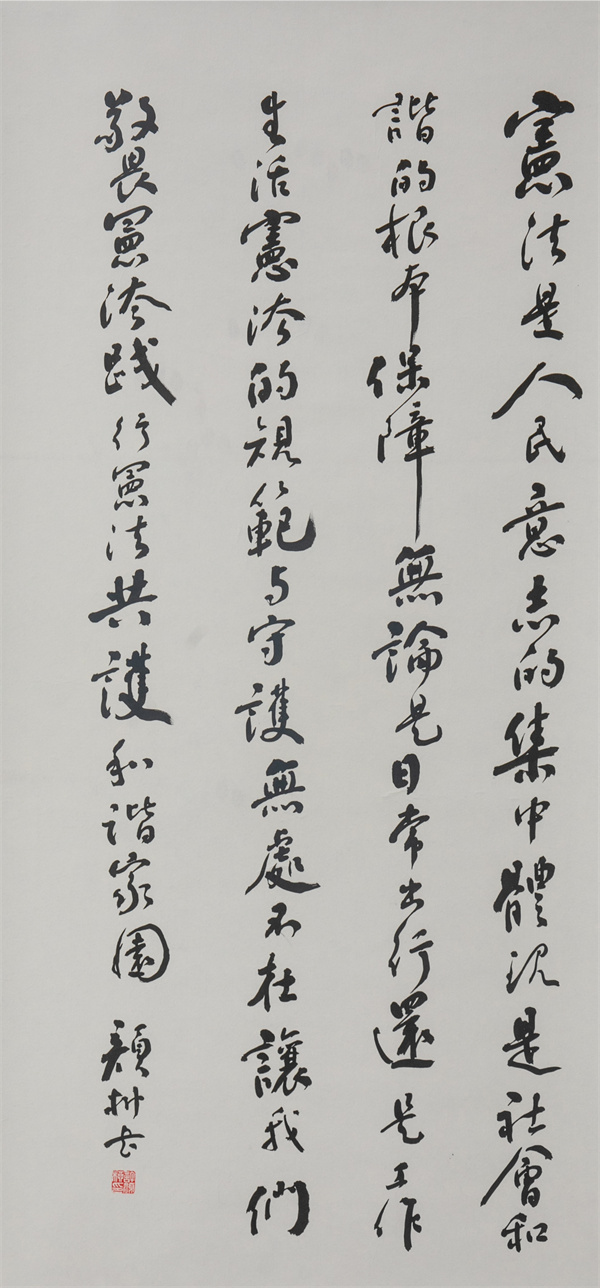 憲法是人民意志的集中體現是社會和
諧的根本保障無論是日常出行還是工作
生活憲法的規範与守護無處不在讓我們
敬畏憲法踐行憲法共護和諧家園 书